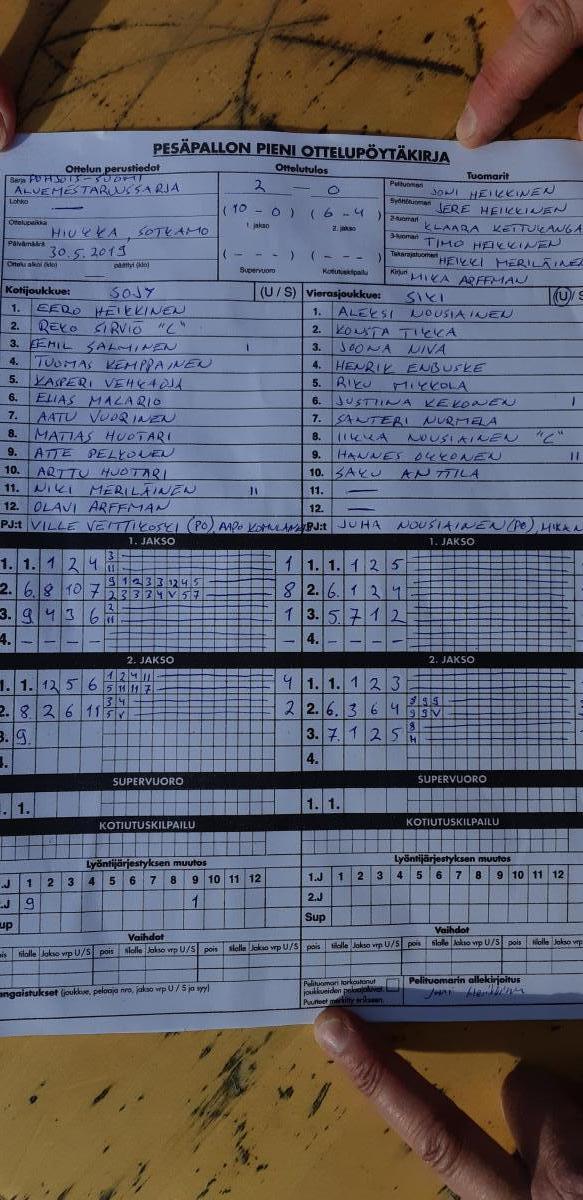 PESÄPALLON PIENI OTTELUPÖYTÄKIRJA
Ottelun perustiedot
Sarja POHJOIS-SUOMI
ALUEMESTARUUSSARJA
Lohko —
Ottelupaikka HIUKKA, SOTKAMO
Päivämäärä 30.5.2019
Ottelu alkoi (klo) — päättyi (klo)
Ottelutulos
2 — 0
(10 - 0) (6 - 4)
1. jakso 2. jakso
(- - -) (- - -)
Supervuoro Kotiutuskilpailu
Tuomarit
Pelituomari JONI HEIKKINEN
Syöttötuomari JERE HEIKKINEN
2-tuomari KLAARA KETTUKANGA
3-tuomari TIMO HEIKKINEN
Takarajatuomari HEIKKI MERILÄINE
Kirjuri MIKA ARFFMAN
Kotijoukkue: SOJY (U / S)
1. EERO HEIKKINEN
2. REKO SIRVIÖ "C"
3. EEMIL SALMINEN I
4. TUOMAS KEMPPAINEN
5. KASPERI VEHKAOJA
6. ELIAS MALARIO
7. AATU VUORINEN
8. MATIAS HUOTARI
9. ATTE PELKONEN
10. ARTTU HUOTARI
11. NIKI MERILÄINEN II
12. OLAVI ARFFMAN
PJ:t VILLE VEITTIKOSKI (PO), AAPO
Vierasjoukkue: SIKI (U) / S
1. ALEKSI NOUSIAINEN
2. KONSTA TIKKA
3. JOONA NIVA
4. HENRIK ENBUSKE
5. RIKU MIKKOLA
6. JUSTIINA KEKONEN I
7. SANTERI NURMELA
8. IIKKA NOUSIAINEN "C"
9. HANNES OKKONEN II
10. SAKU ANTTILA
11. —
12. —
PJ:t JUHA NOUSIAINEN (PO), MIKA
1. JAKSO
1. 1. 1 2 4 3 11 1
2. 6. 8 10 7 9 1 2 3 3 12 4 5 8
2 3 3 3 4 V 5 7
3. 9 4 3 6 2 11 1
4. – – – – –
1. JAKSO
1. 1. 1 2 5
2. 6. 1 2 4
3. 5. 7 1 2
4.
2. JAKSO
1. 1. 12 5 6 1 2 4 11 4
5 11 11 7
2. 8 2 6 11 3 4 2
5 V
3. 9.
4.
2. JAKSO
1. 1. 1 2 3
2. 6. 3 6 4 9 9 9
9 9 V
3. 7. 1 2 5 8
4.
SUPERVUORO
1. 1.
SUPERVUORO
1. 1.
KOTIUTUSKILPAILU
KOTIUTUSKILPAILU
Lyöntijärjestyksen muutos
.J 1 2 3 4 5 6 7 8 9 10 11 12
.J 9 1
up
Lyöntijärjestyksen muutos
1.J 1 2 3 4 5 6 7 8 9 10 11 12
2.J
Sup
Vaihdot
ois tilalle Jakso vrp U / S pois tilalle Jakso vrp U / S pois tilalle Jakso vrp U / S
Vaihdot
pois tilalle Jakso vrp U / S pois tilalle Jakso vrp U / S pois tilalle Jakso vrp
angaistukset (joukkue, pelaaja nro, jakso vrp U / S ja syy)
Pelituomari tarkastanut
joukkueiden pelaajaluvat
Puutteet merkitty erikseen.
Pelituomarin allekirjoitus
Joni Heikkinen